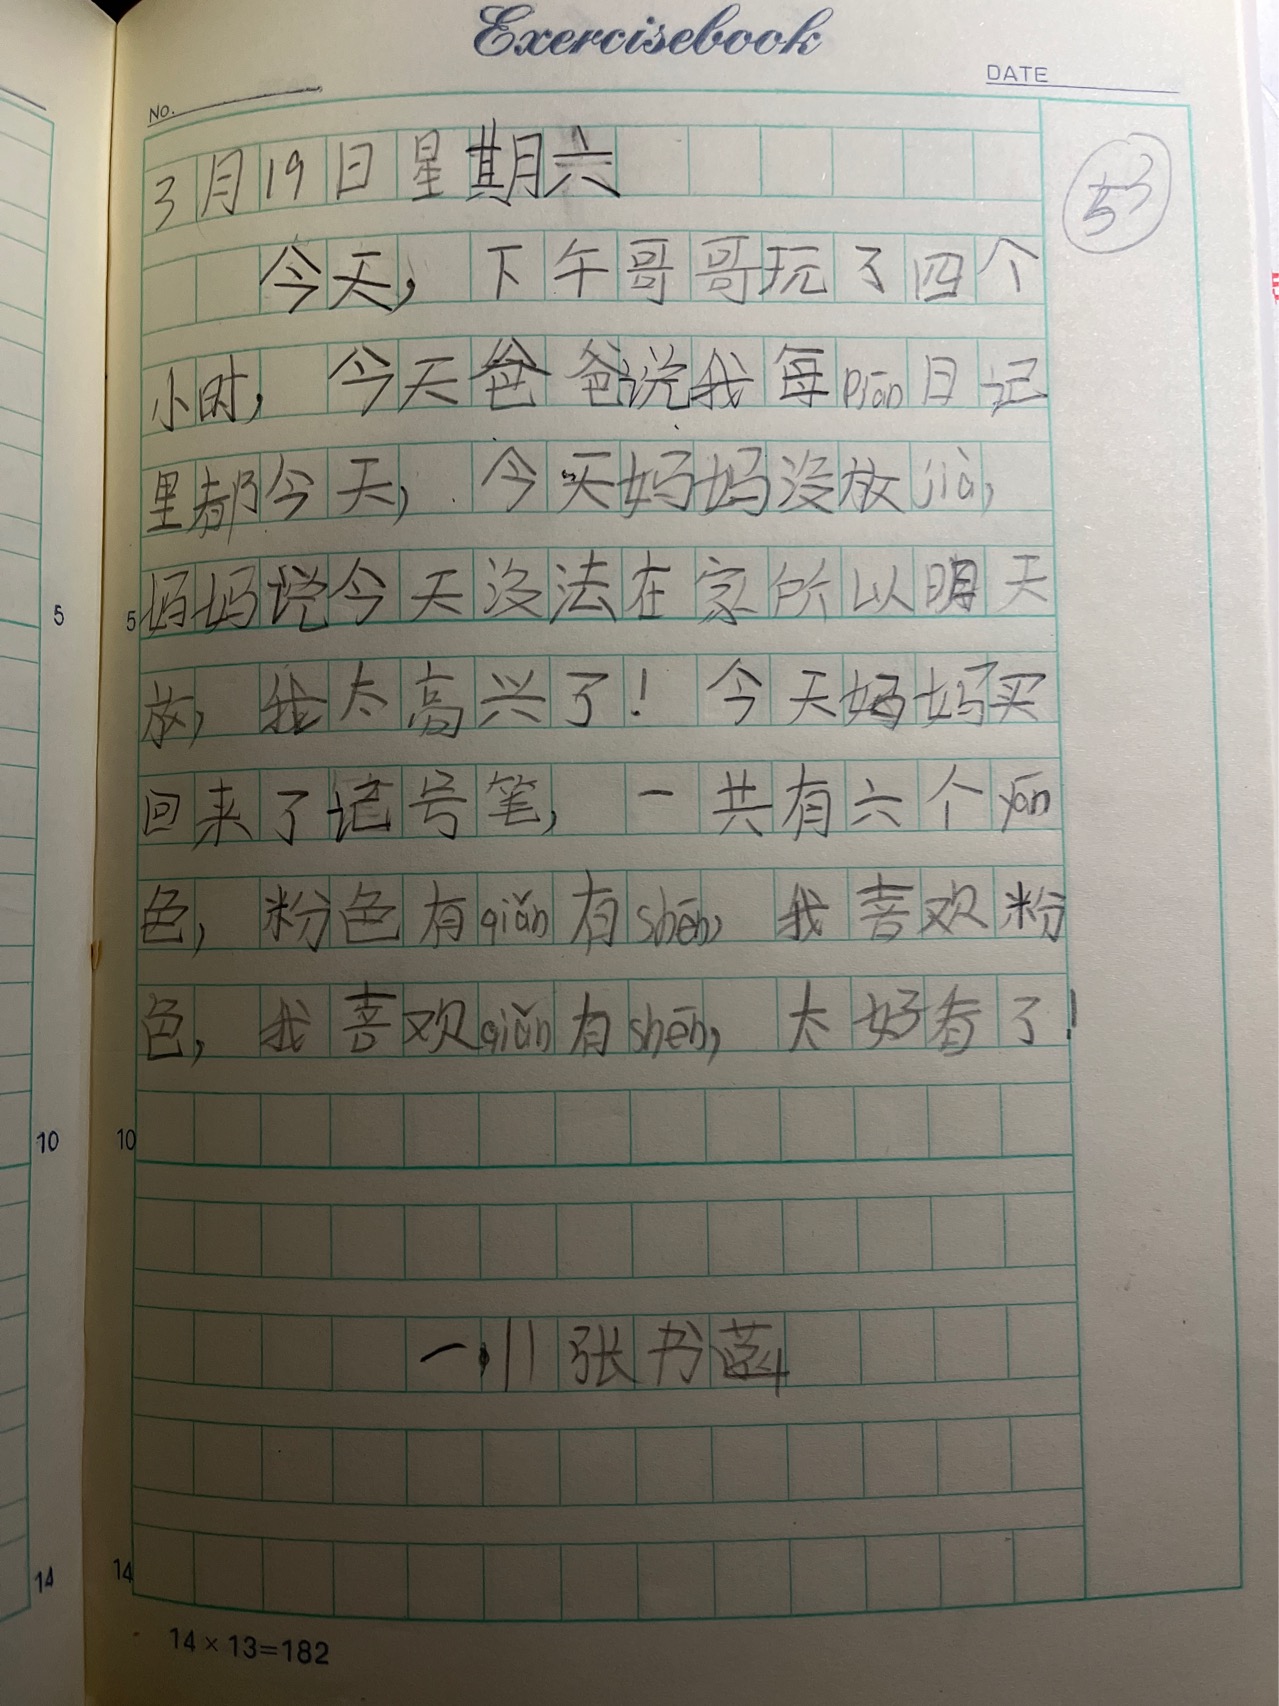 Exercisebook
NO.
DATE
53
3月19日星期六
今天,下午哥哥玩了四个
小时,今天爸爸说我每piān日记
里都今天,今天妈妈没放jià,
妈妈说今天没法在家所以明天
放,我太高兴了!今天妈妈买
回来了记号笔,一共有六个yán
色,粉色有qiǎn有shēn,我喜欢粉
色,我喜欢qiǎn有shēn,太好看了!
一.11张书
5
5
10
10
14
14
14×13=182